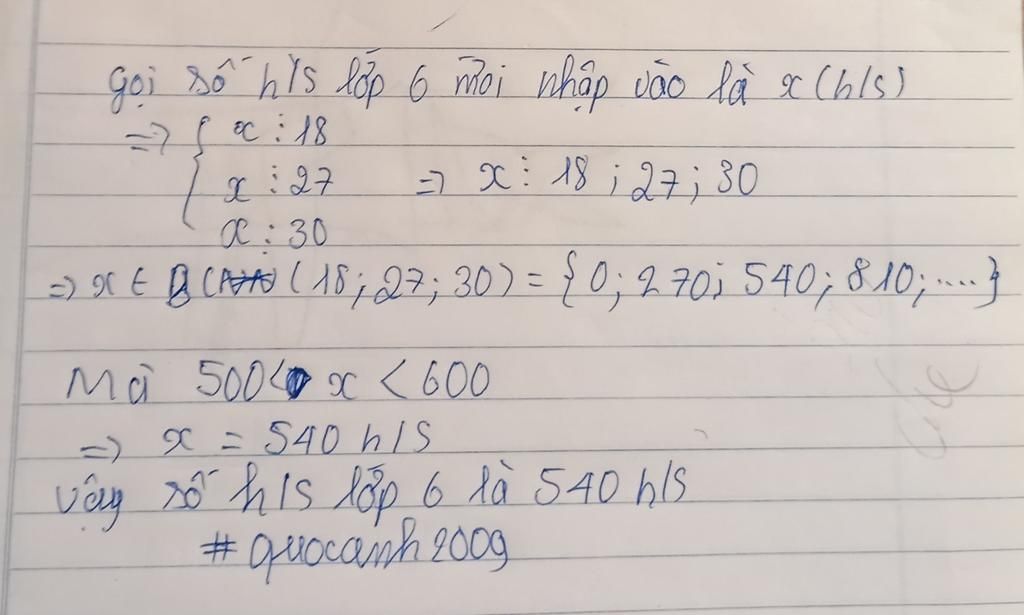 Gọi số h/s lớp 6 mới nhập vào là x (h/s)
=> { x ⋮ 18
x ⋮ 27 => x ⋮ 18 ; 27 ; 30
x ⋮ 30
=> x ∈ B (18 ; 27 ; 30) = {0 ; 270 ; 540 ; 810 ; ....}
Mà 500 < x < 600
=> x = 540 h/s
Vậy số h/s lớp 6 là 540 h/s
#quocanh2009